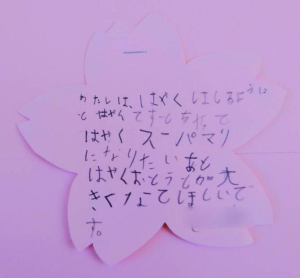 わたしは、はやく はししるように
と はやく てすと やって
はやく スーパマリ
になりたい あと
はやく おとうとが 大
きくなてほしいで
す。